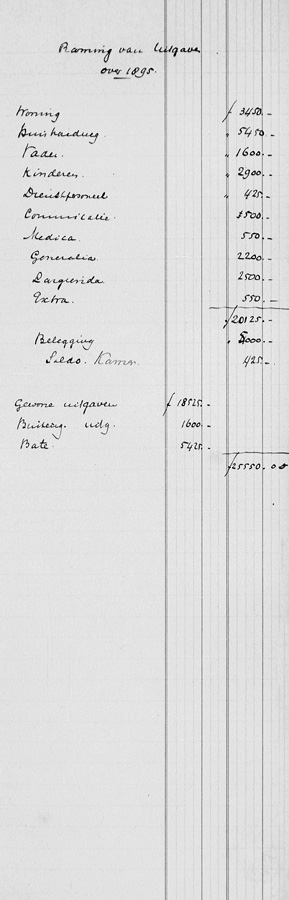 Raming van Uitgaven
over 1895.
Woning f 3450.-
Huishouding „ 5450.-
Vader. „ 1600.-
Kinderen. „ 2900.-
Dienstpersoneel „ 425.-
Communicatie. 500.-
Medica. 550.-
Generalia 2200.-
Largienda 2500.-
Extra. 550.-
f 20125.-
Belegging „ 5000.-
Saldo. 425.-
Gewone uitgaven f 18525.-
Buiteng. uitg. 1600.-
Bate 5425.-
f 25550.00